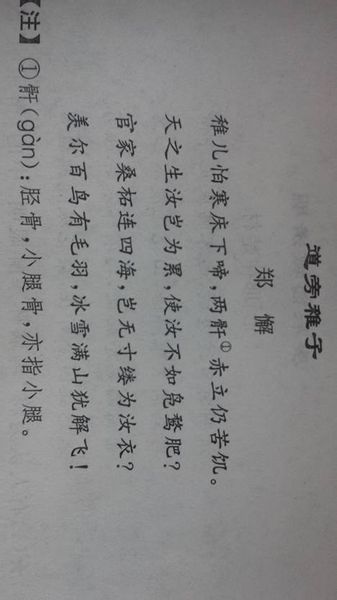 道旁稚子
郑 懈
稚儿怕寒床下啼,两骭①赤立仍苦饥。
天之生汝岂为累,使汝不如凫鹜肥?
官家桑柘连四海,岂无寸缕为汝衣?
羡尔百鸟有毛羽,冰雪满山犹解飞!
【注】①骭(gàn):胫骨,小腿骨,亦指小腿。